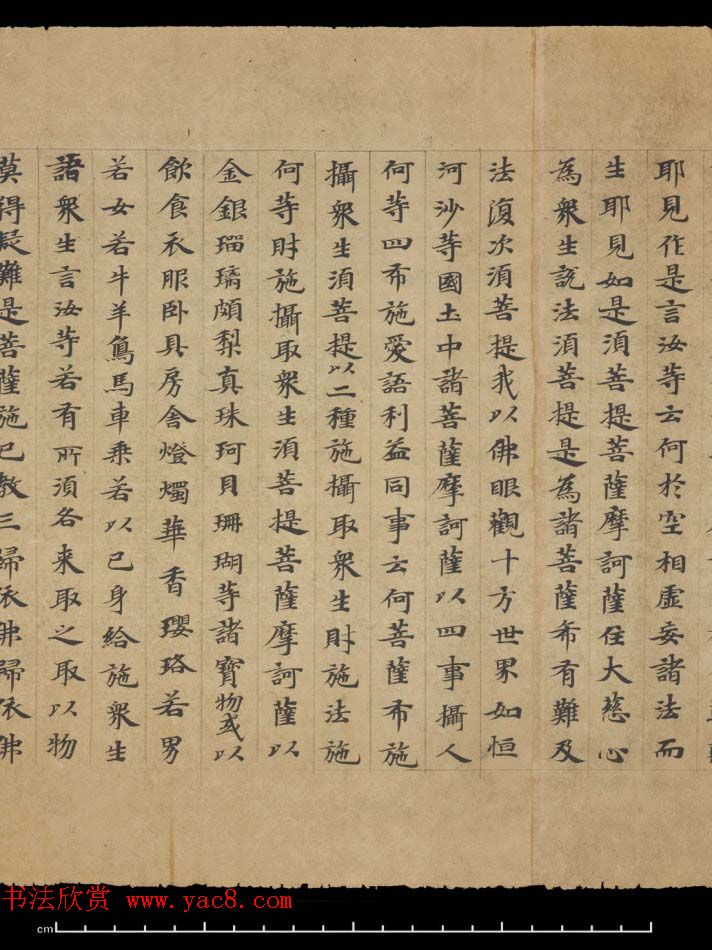 耶見作是言汝等云何於空相虛妄諸法而
生耶見如是須菩提菩薩摩訶薩住大慈心
為衆生説法須菩提是為諸菩薩希有難及
法復次須菩提我以佛眼觀十方世界如恒
河沙等國土中諸菩薩摩訶薩以四事攝人
何等四布施愛語利益同事云何菩薩布施
攝衆生須菩提以二種施攝取衆生財施法施
何等財施攝取衆生須菩提菩薩摩訶薩以
金銀瑠璃頗梨真珠珂貝珊瑚等諸寶物或以
飲食衣服卧具房舍燈燭華香瓔珞若男
若女若牛羊鳥馬車乗若以己身給施衆生
語衆生言汝等若有所須各来取之取以物
莫得疑難是菩薩施已教三歸依佛歸依佛
书法欣赏 www.yac8.com
cm